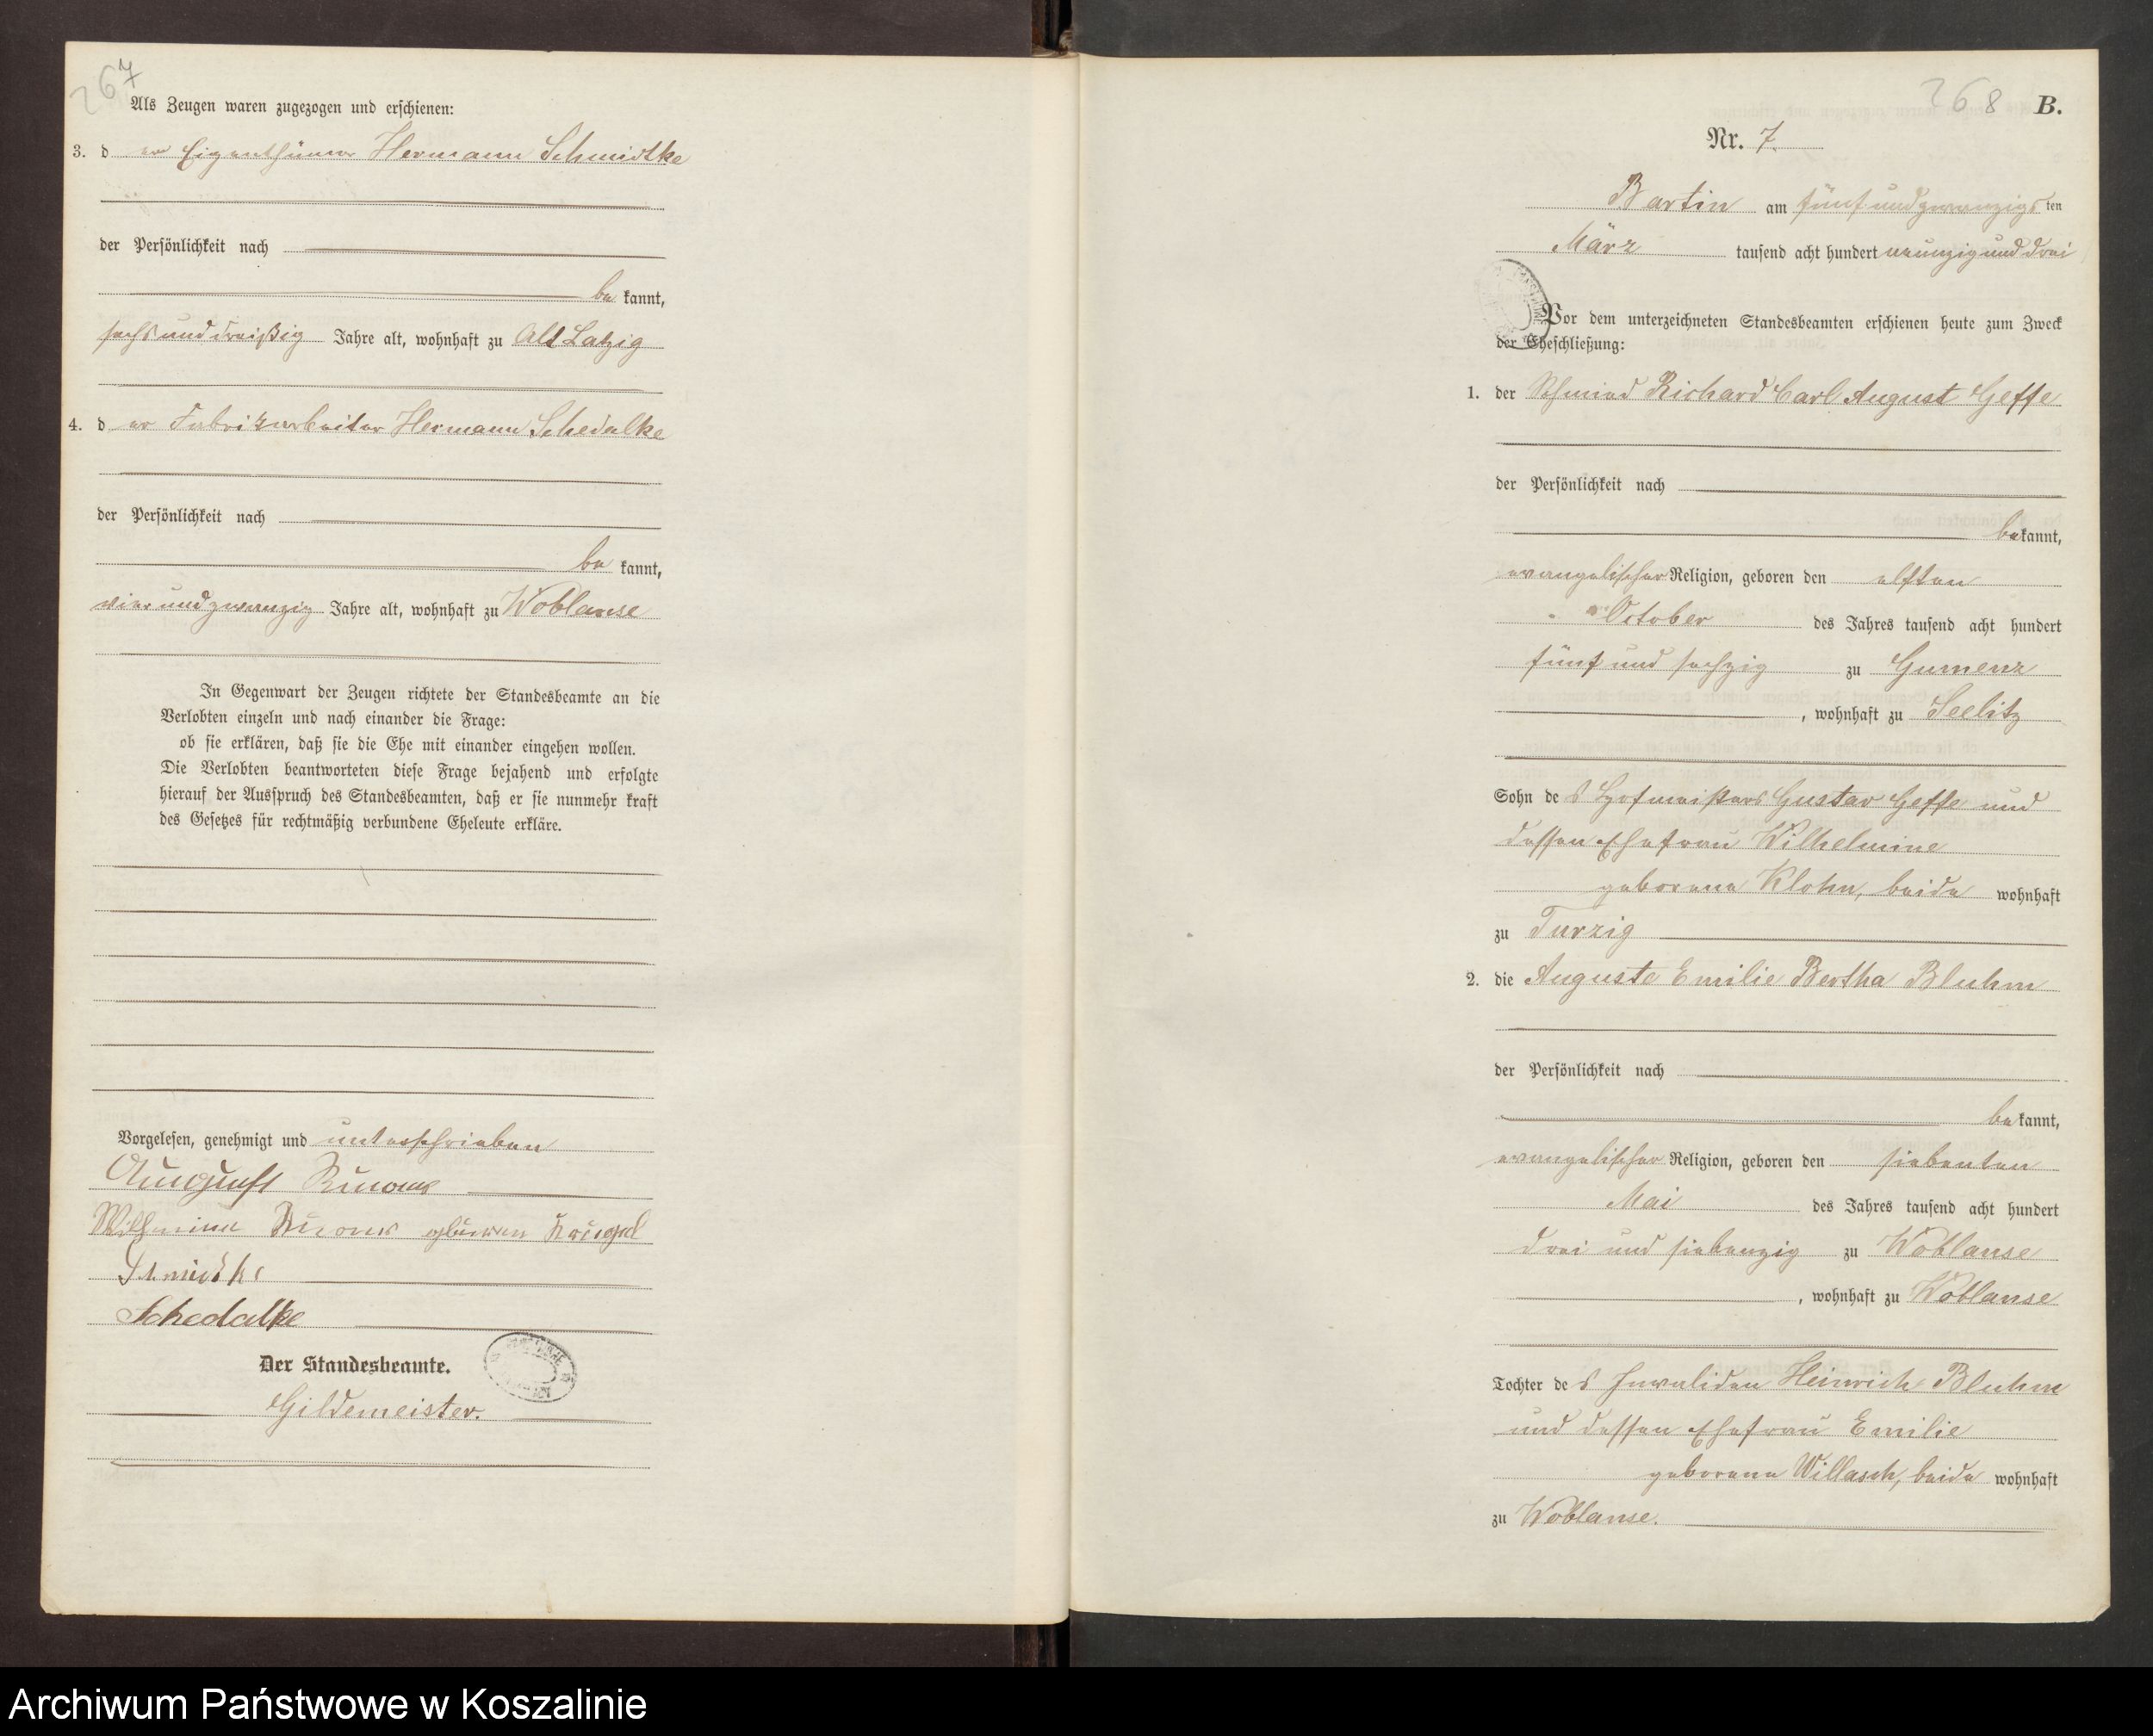 267
Als Zeugen waren zugezogen und erschienen:
3. d er Eigenthümer Hermann Schmidtke
der Persönlichkeit nach
be kannt,
sechs und dreißig Jahre alt, wohnhaft zu Alt Latzig
4. d er Fabrikarbeiter Hermann Schedalke
der Persönlichkeit nach
be kannt,
vier und zwanzig Jahre alt, wohnhaft zu Woblanse
In Gegenwart der Zeugen richtete der Standesbeamte an die
Verlobten einzeln und nach einander die Frage:
ob sie erklären, daß sie die Ehe mit einander eingehen wollen.
Die Verlobten beantworteten diese Frage bejahend und erfolgte
hierauf der Ausspruch des Standesbeamten, daß er sie nunmehr kraft
des Gesetzes für rechtmäßig verbundene Eheleute erkläre.
Vorgelesen, genehmigt und unterschrieben
August
Krüger
Schedalke
Der Standesbeamte.
Gildemeister.
268 B.
Nr. 7.
Bartin am fünf und zwanzigs ten
März tausend acht hundert neunzig und drei
Vor dem unterzeichneten Standesbeamten erschienen heute zum Zweck
der Eheschließung:
1. der Schmied Richard Carl August Geffe
der Persönlichkeit nach
be kannt,
evangelischer Religion, geboren den elften
October des Jahres tausend acht hundert
fünf und sechzig zu Gumenz
, wohnhaft zu Seelitz
Sohn de s Hofmeisters Gustav Geffe und
dessen Ehefrau Wilhelmine
geborene Klohn, beide wohnhaft
zu Turzig
2. die Auguste Emilie Bertha Bluhm
der Persönlichkeit nach
be kannt,
evangelischer Religion, geboren den siebenten
Mai des Jahres tausend acht hundert
drei und siebenzig zu Woblanse
, wohnhaft zu Woblanse
Tochter de s Invaliden Heinrich Bluhm
und dessen Ehefrau Emilie
geborene Willasch, beide wohnhaft
zu Woblanse.
Archiwum Państwowe w Koszalinie